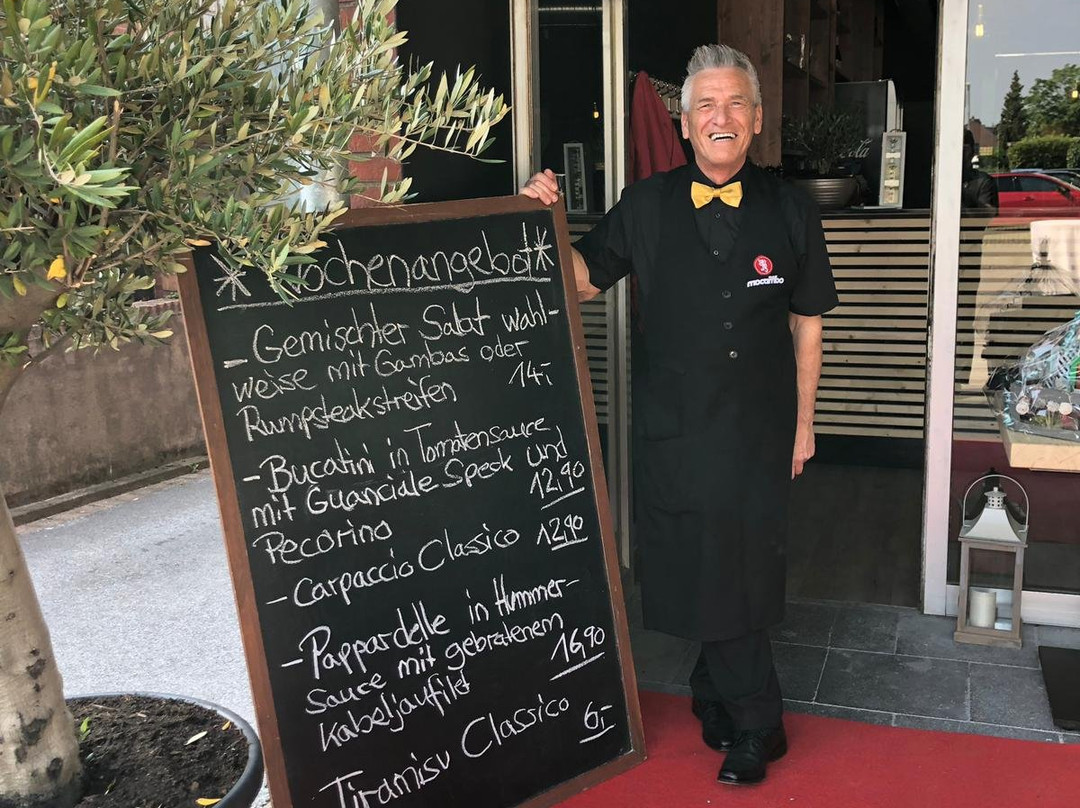 *Wochenangebot*
- Gemischter Salat wahl-
weise mit Gambas oder
Rumpsteakstreifen 14,-
- Bucatini in Tomatensauce
mit Guanciale Speck und
Pecorino 12,90
- Carpaccio Classico 12,90
- Pappardelle in Hummer-
sauce mit gebratenem
Kabeljaufilet 16,90
Tiramisu Classico 6,-
mocambo